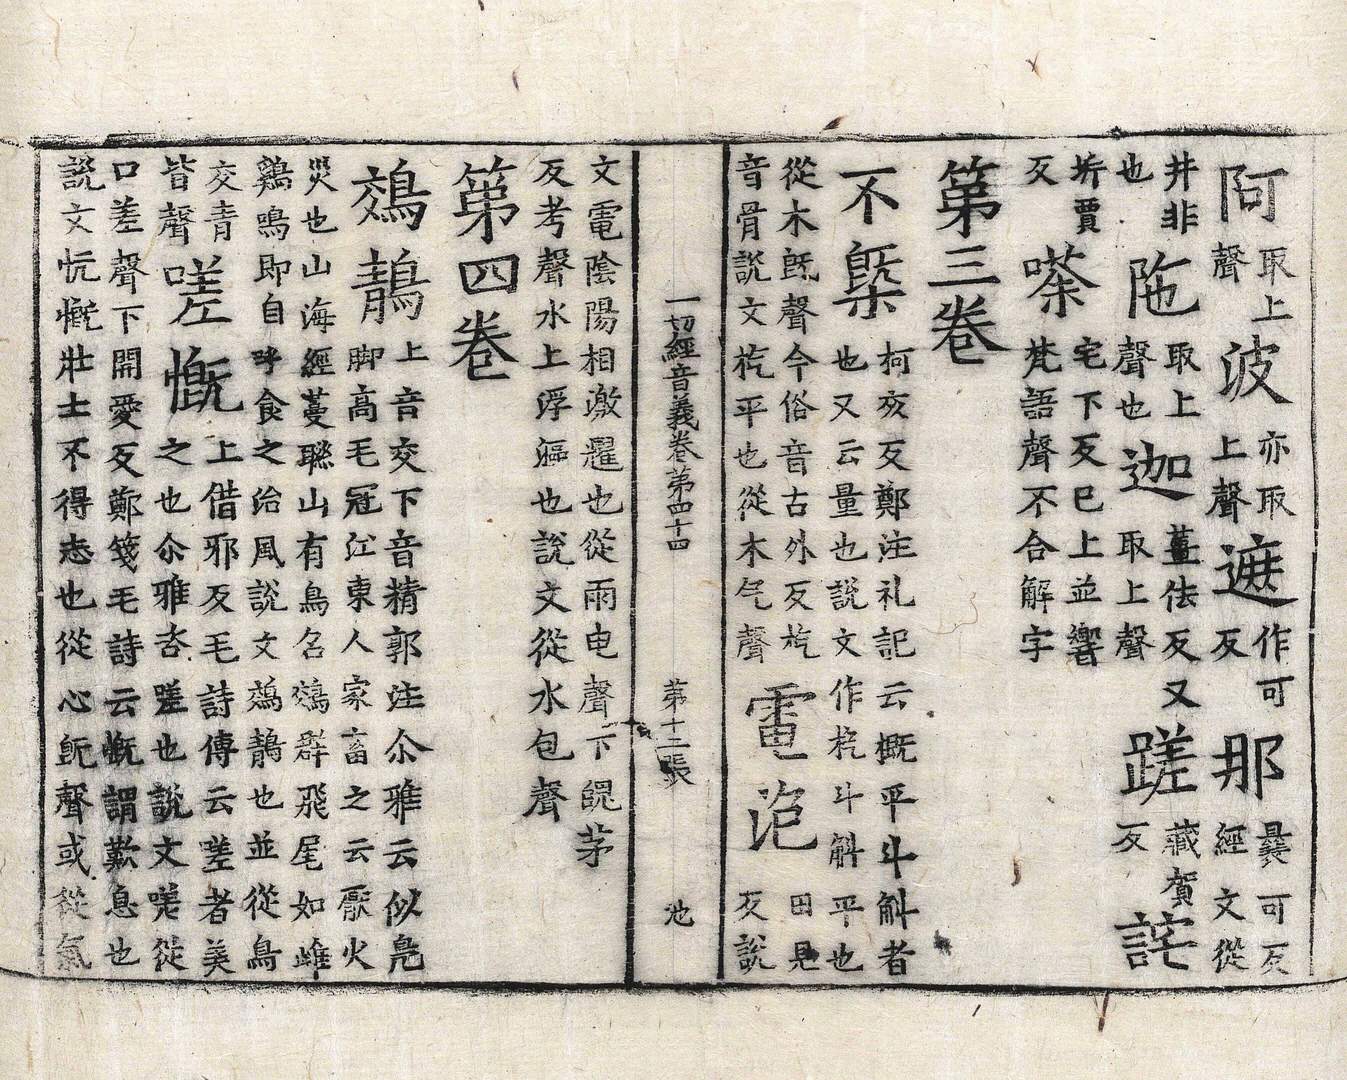 阿取上聲波亦取上聲遮作可反那㝹可反經文從
井非也陁取上聲也迦薑佉反又取上聲蹉藏賀反詫
坼賈反嗏宅下反巳上並響梵語聲不合解字
第三卷
不槩柯亥反鄭注礼記云概平斗斛者也又云量也說文作杚斗斛平也
從木旣聲今俗音古外反杚音骨說文杚平也從木气聲電泡田見反說
一切經音義卷第四十四 第十二張 池
文電陰陽相激耀也從雨电聲下皅茅反考聲水上浮漚也說文從水包聲
第四卷
鵁鶄上音交下音精郭注尒雅云似鳬脚高毛冠江東人家畜之云厭火
災也山海經蔓聮山有鳥名鵁群飛尾如雌鷄鳴即自呼食之治風說文鵁鶄也並從鳥
交青皆聲嗟慨上借邪反毛詩傳云嗟者美之也尒雅咨嗟也說文嗟從
口差聲下開愛反鄭箋毛詩云慨謂歎息也說文忼慨壯士不得志也從心旣聲或從氣